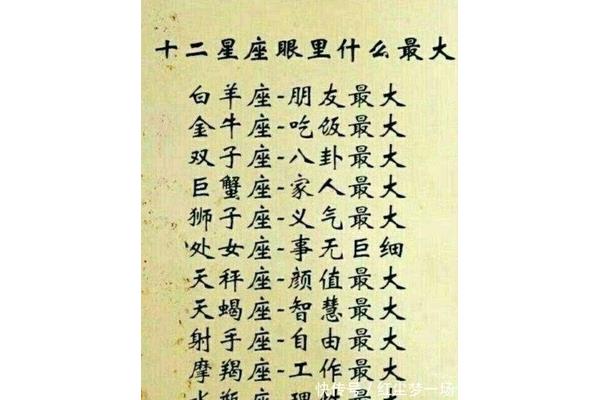 十二星座眼里什么最大
白羊座-朋友最大
金牛座-吃饭最大
双子座-八卦最大
巨蟹座-家人最大
狮子座-义气最大
处女座-事无巨细
天秤座-颜值最大
天蝎座-智慧最大
射手座-自由最大
摩羯座-工作最大
快传号/红尘梦一场